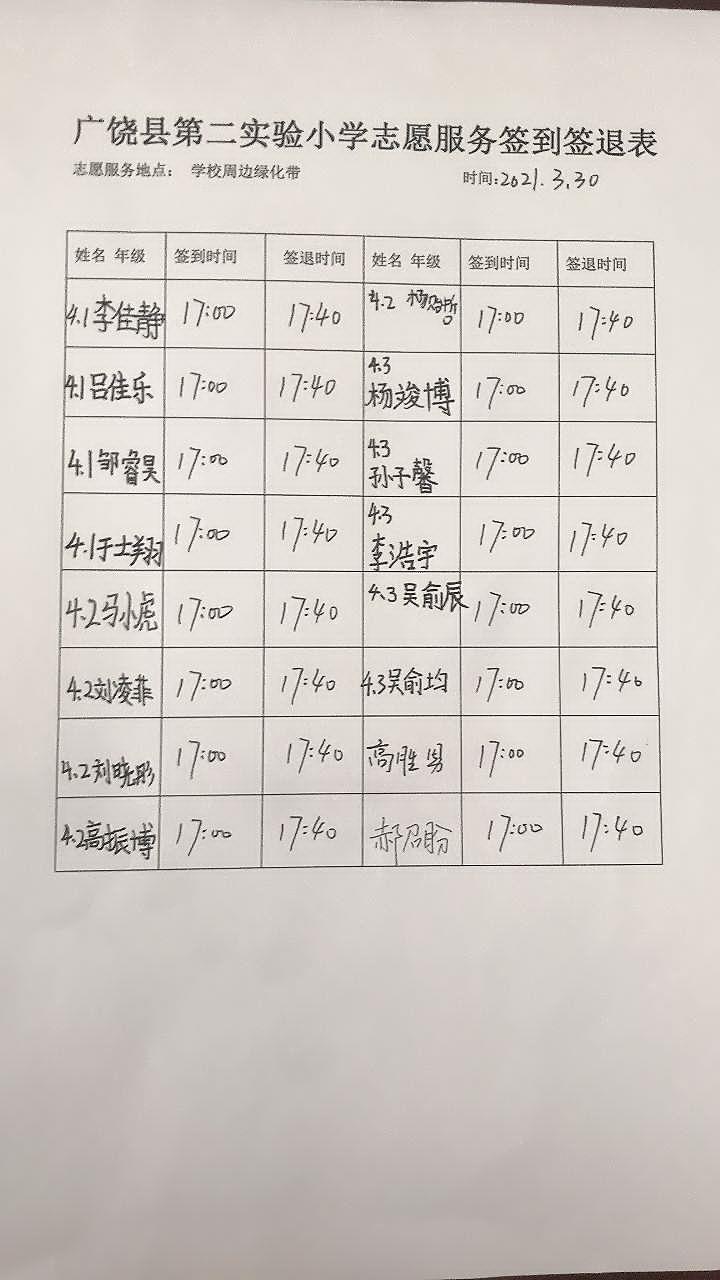 广饶县第二实验小学志愿服务签到签退表
志愿服务地点： 学校周边绿化带 时间:2021.3.30
姓名 年级 签到时间 签退时间 姓名 年级 签到时间 签退时间
4.1李佳静 17:00 17:40 4.2 杨 17:00 17:40
4.1吕佳乐 17:00 17:40 4.3 杨竣博 17:00 17:40
4.1邹睿昊 17:00 17:40 4.3 孙子馨 17:00 17:40
4.1于士翔 17:00 17:40 4.3 李浩宇 17:00 17:40
4.2马小虎 17:00 17:40 4.3吴俞辰 17:00 17:40
4.2刘凌菲 17:00 17:40 4.3吴俞均 17:00 17:40
4.2刘晓彤 17:00 17:40 高胜男 17:00 17:40
4.2高振博 17:00 17:40 郝召盼 17:00 17:40